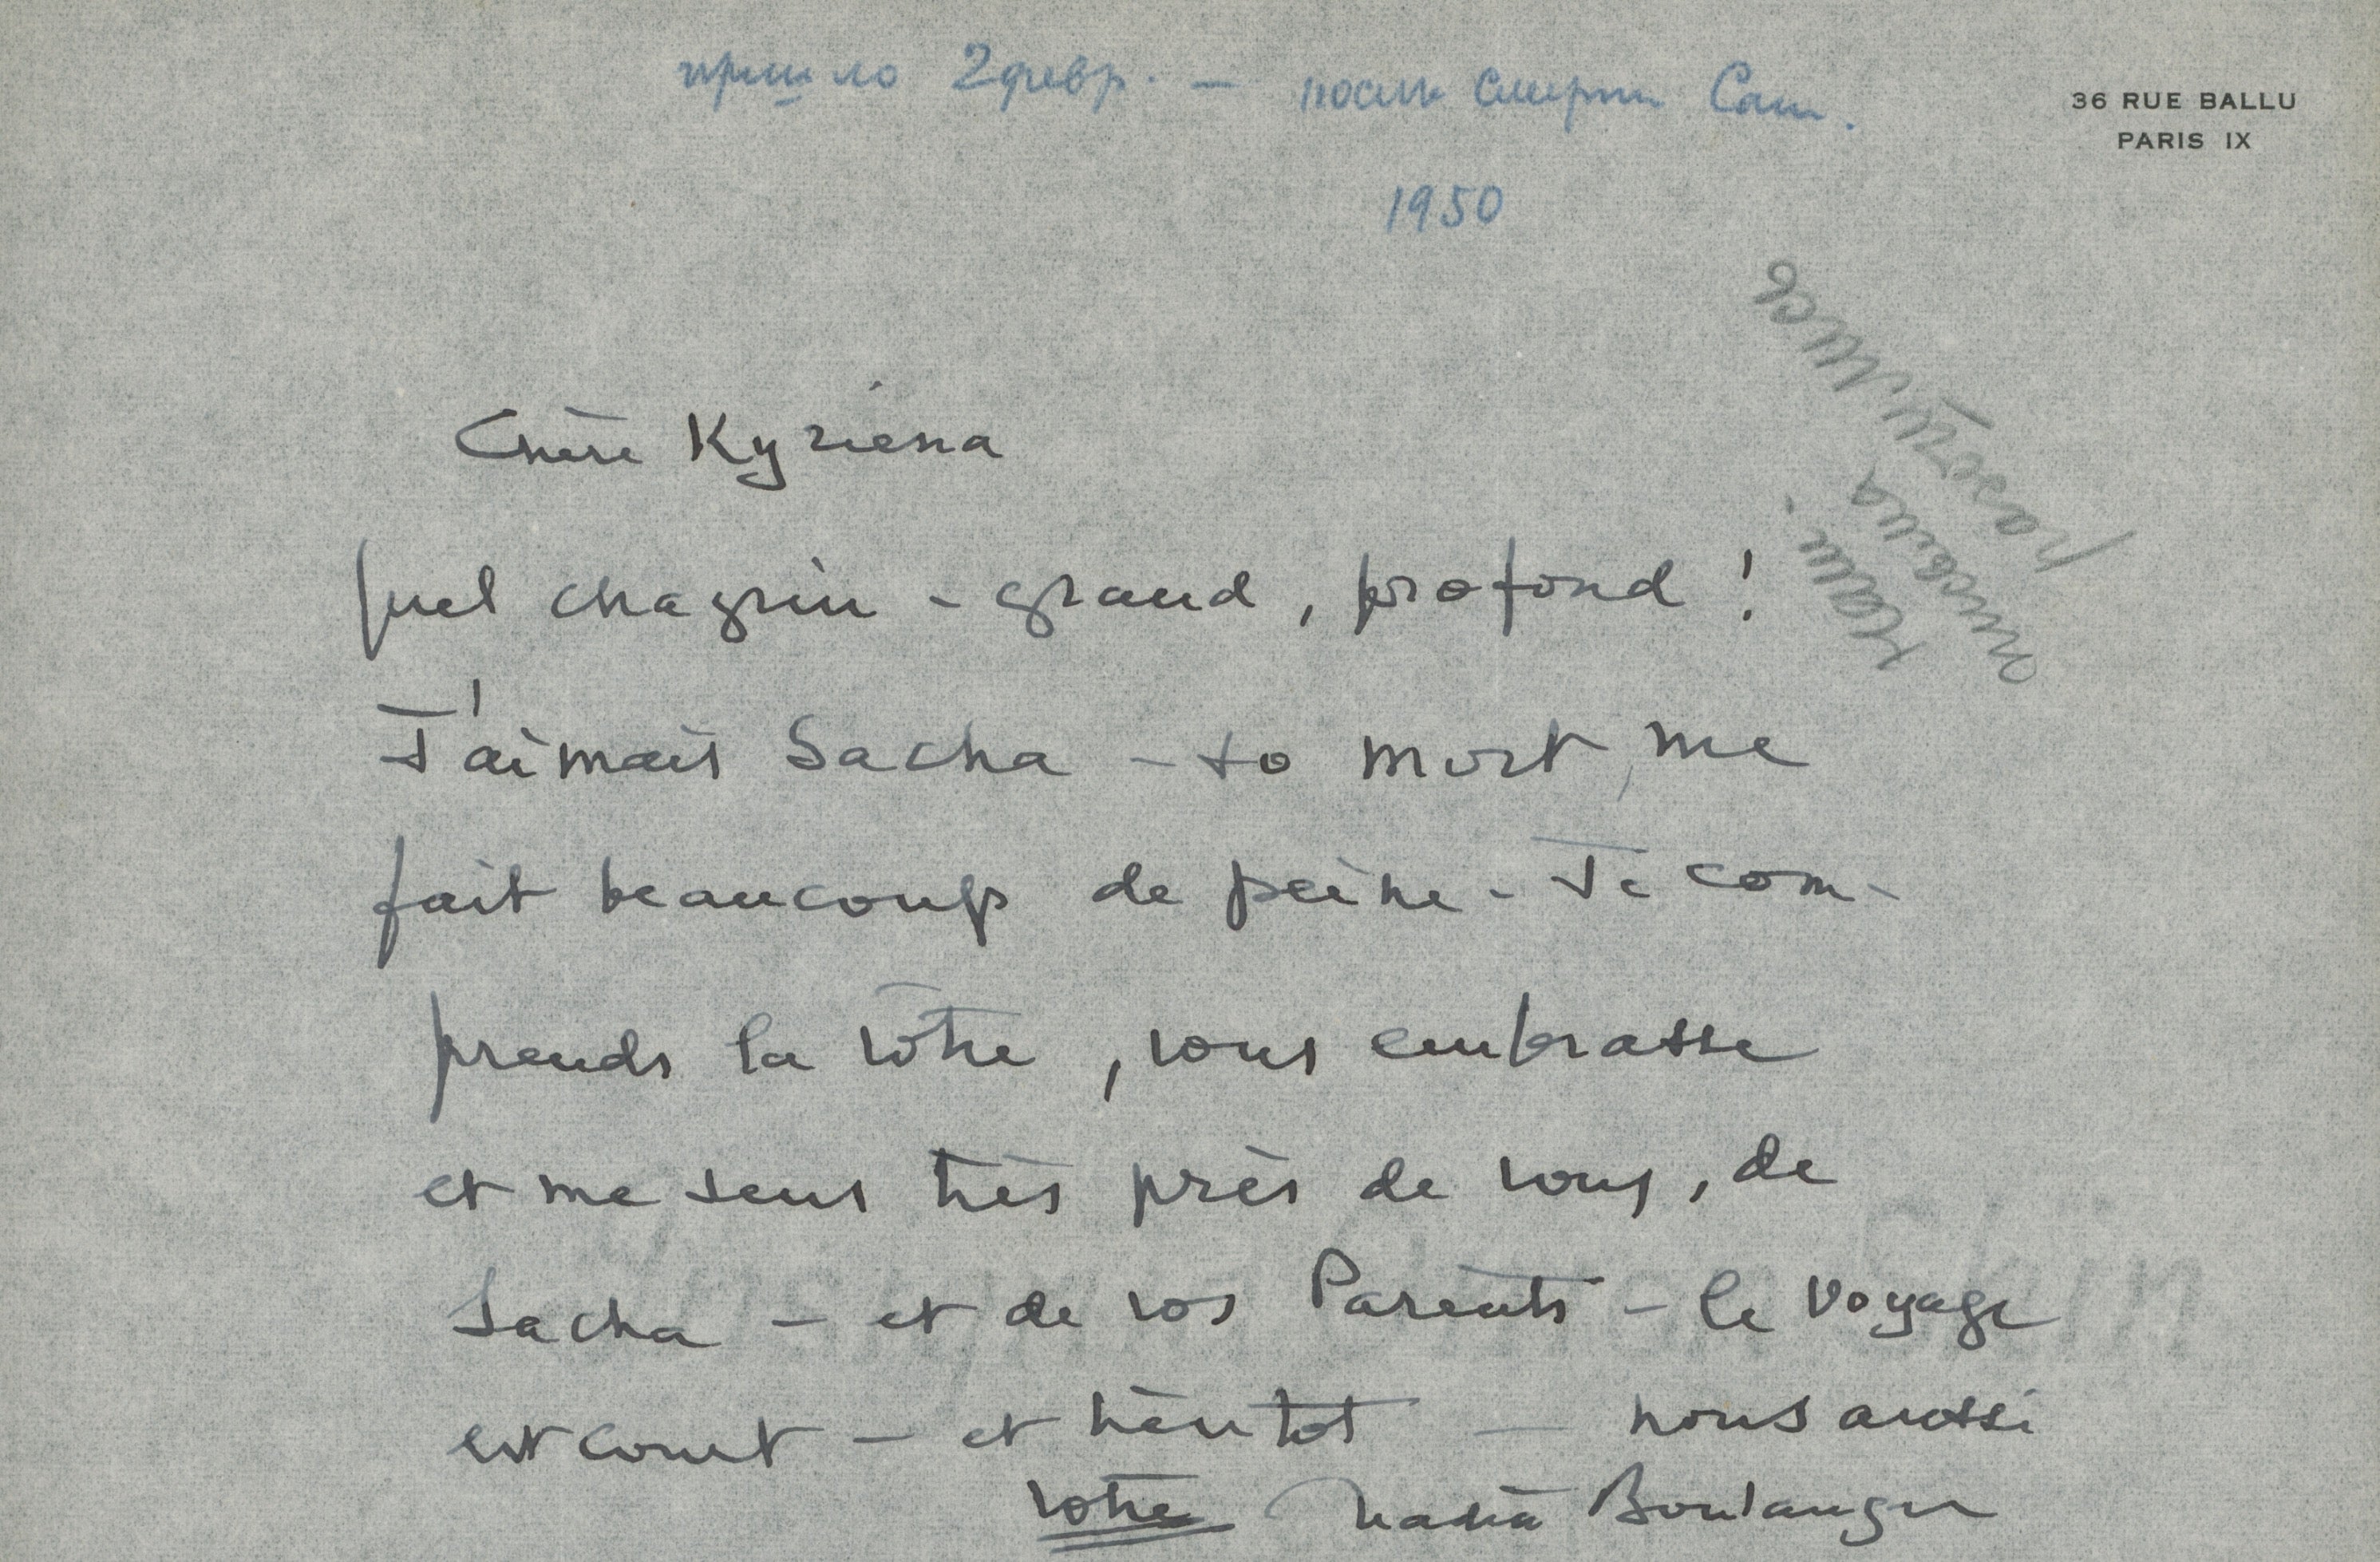 пришло 2 февр. — после смерти Саши.
1950
36 RUE BALLU
PARIS IX
Chère Kyriena
quel chagrin - grand, profond !
J'aimais Sacha - sa mort, me
fait beaucoup de peine - Je com-
prends la vôtre, vous embrasse
et me sens très près de vous, de
Sacha - et de vos Parents - le voyage
est court - et bientôt — nous aussi
votre Nadia Boulanger